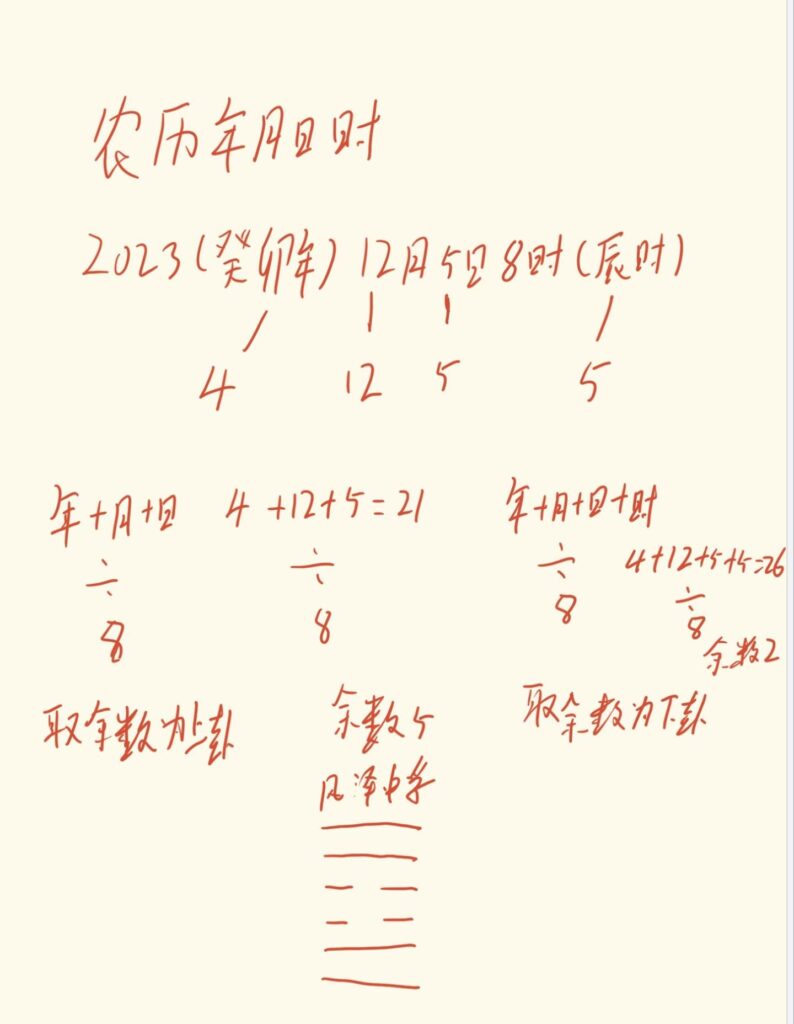 农历年月日时
2023(癸卯年) 12月5日8时(辰时)
4 12 5 5
年+月+日 4+12+5=21 年+月+日+时
÷ ÷ ÷ 4+12+5+5=26
8 8 8 ÷
8
余数2
取余数为上卦 余数5 取余数为下卦
风泽中孚